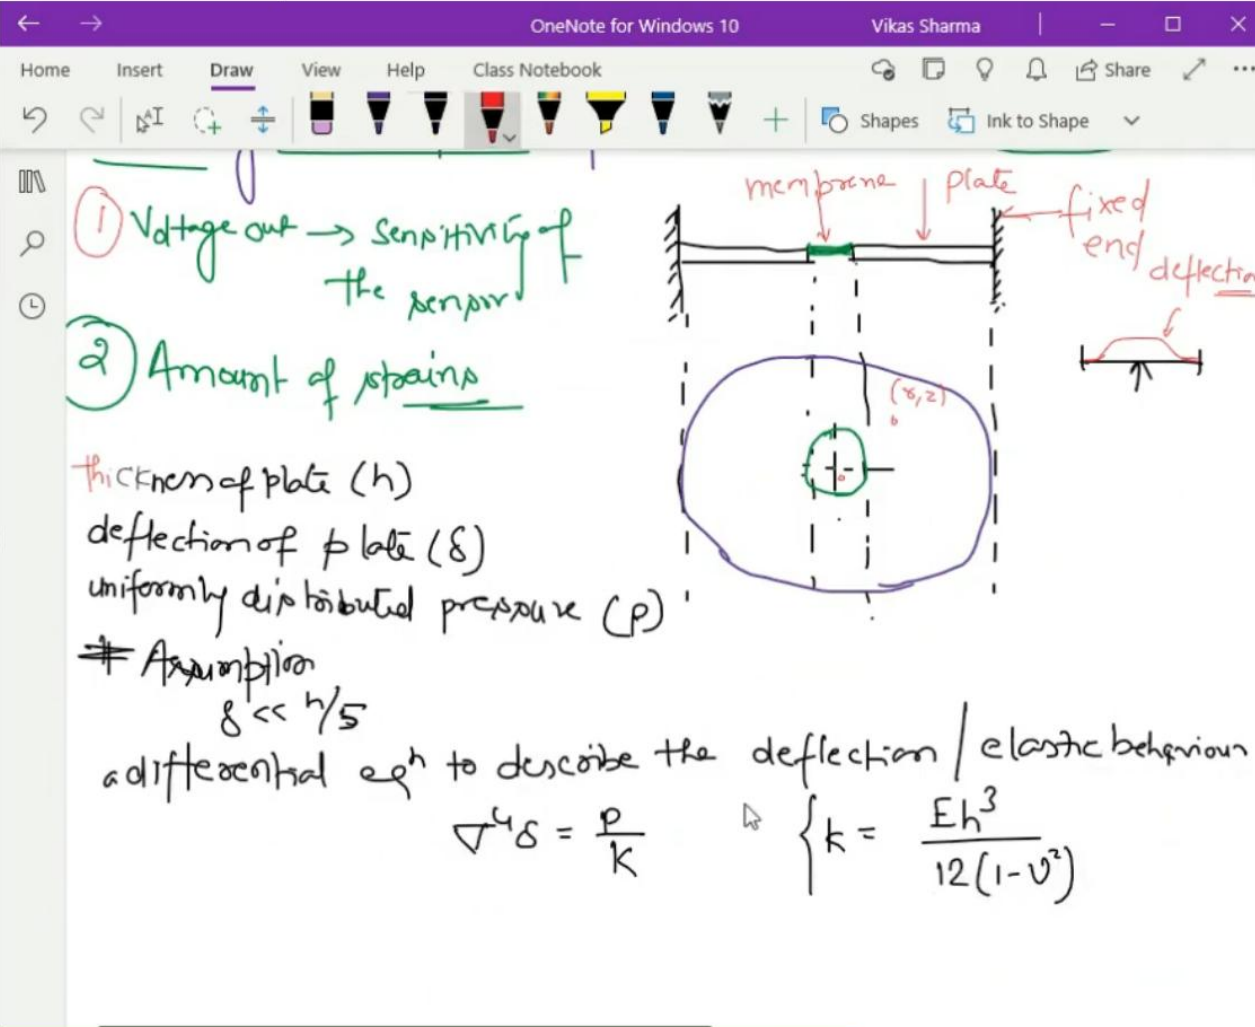 OneNote for Windows 10
Vikas Sharma
Home Insert Draw View Help Class Notebook
Share
Shapes
Ink to Shape
membrane
plate
fixed
end
deflection
1 Voltage out → Sensitivity of
the sensor
2 Amount of strains
(r,z)
thickness of plate (h)
deflection of plate (δ)
uniformly distributed pressure (p)
* Assumption
δ << h/5
a differential eqn to describe the deflection / elastic behaviour
∇⁴δ = P/K
{ k = Eh³/12(1-ν²)